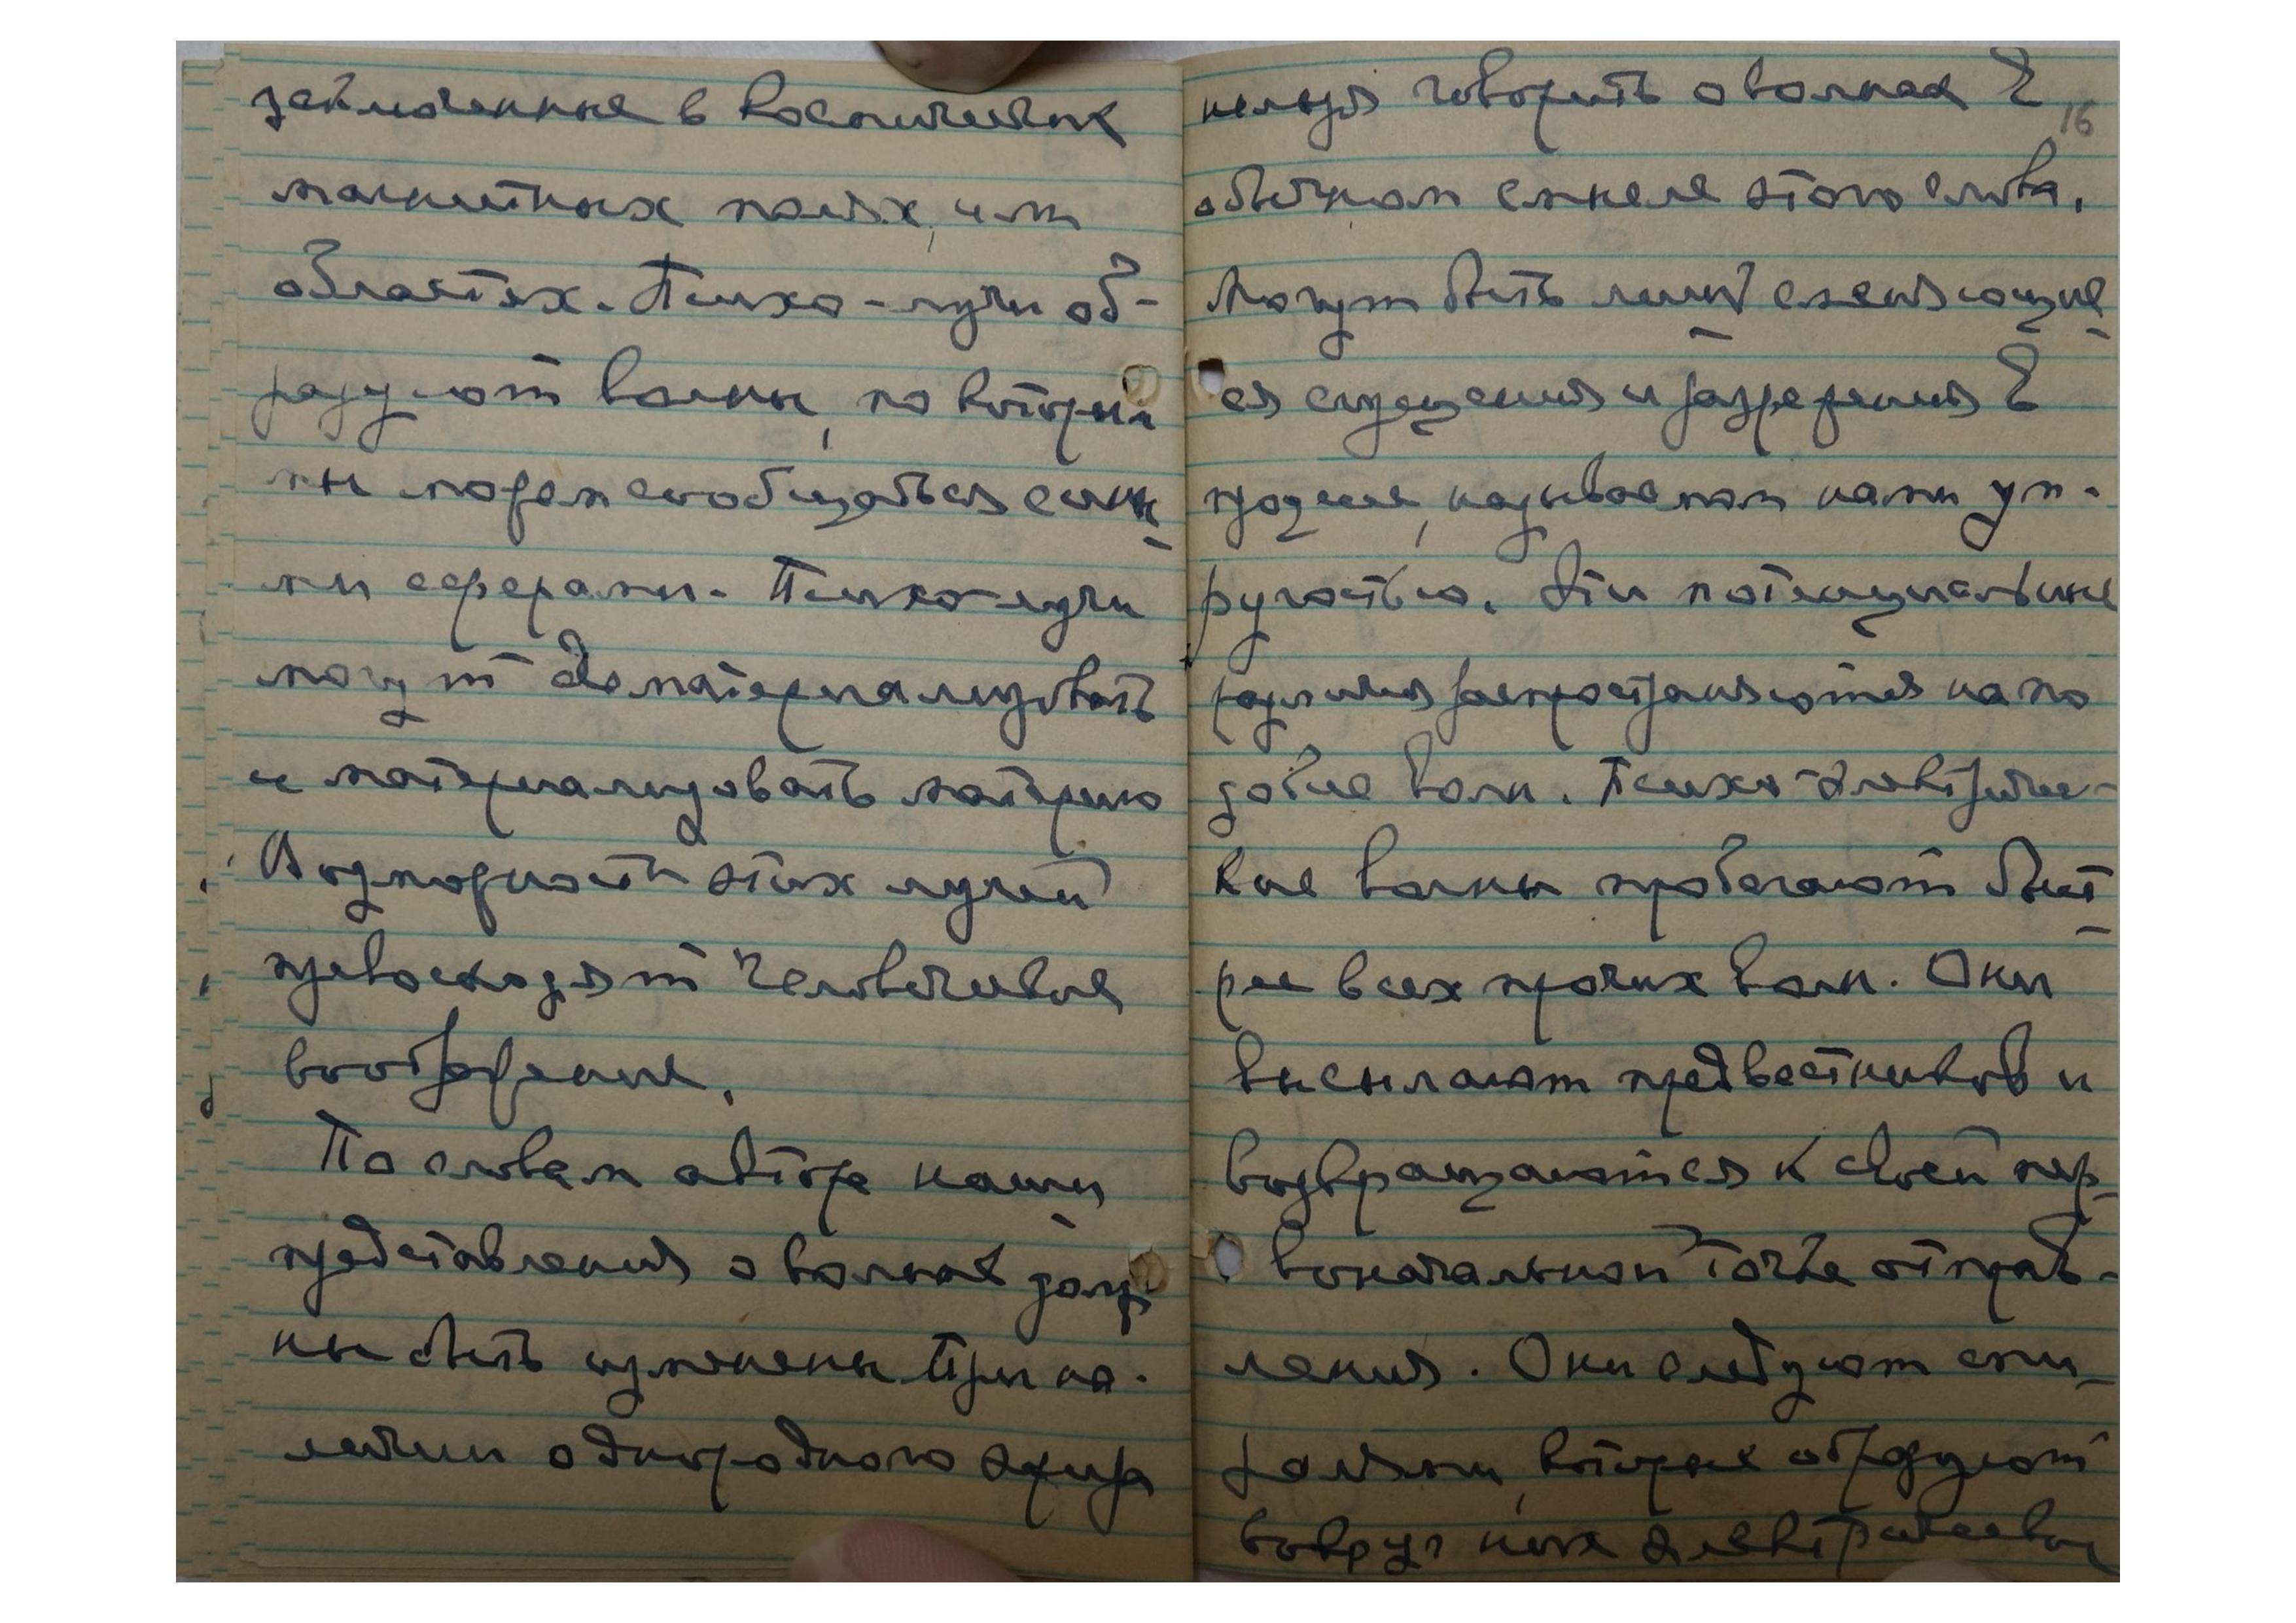 заключенные в космических
магнитных полях, или
областях. Психо-лучи об-
разуют волны, по которым
мы можем сообщаться с ины-
ми сферами. Психо-лучи
могут дематериализовать
и материализовать материю
Возможность этих лучей
превосходят человеческое
воображение.
По словам автора наши
представления о волнах долж
ны быть изменены При на-
личии однородного эфира
16
нельзя говорить о волнах в
обычном смысле этого слова.
Могут быть лишь сменяющие-
ся сгущения и разрежения в
среде, называемой нами уп-
ругостью. Эти потенциальные
различия распространяются на по
добие волн. Психо-электриче-
кие волны пробегают быст-
рее всех прочих волн. Они
высылают предвестников и
возвращаются к своей пер-
воначальной точке отправ-
ления. Они следуют спи-
ралями, которые образуют
вокруг них электрические